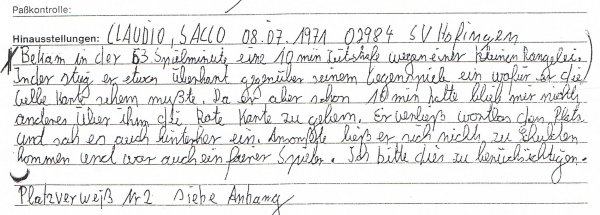 Paßkontrolle:
Hinausstellungen: CLAUDIO, SALLO 08.07.1971 02984 SV Holingen
Bekam in der 53 Spielminute eine 10 min Zeitstrafe wegen einer kleinen Rangelei.
In der stieg er etwas überhart gegenüber seinem Gegenspieler ein wofür er die
Gelbe Karte sehen mußte. Da er aber schon 10 min hatte blieb mir nichts
anderes über ihm die Rote Karte zu geben. Er verließ wortlos den Platz
und sah es auch hinterher ein. Ansonsten ließ er sich nichts zu Schulden
kommen und war auch ein fairer Spieler. Ich bitte dies zu berücksichtigen.
Platzverweiß Nr 2 Siehe Anhang